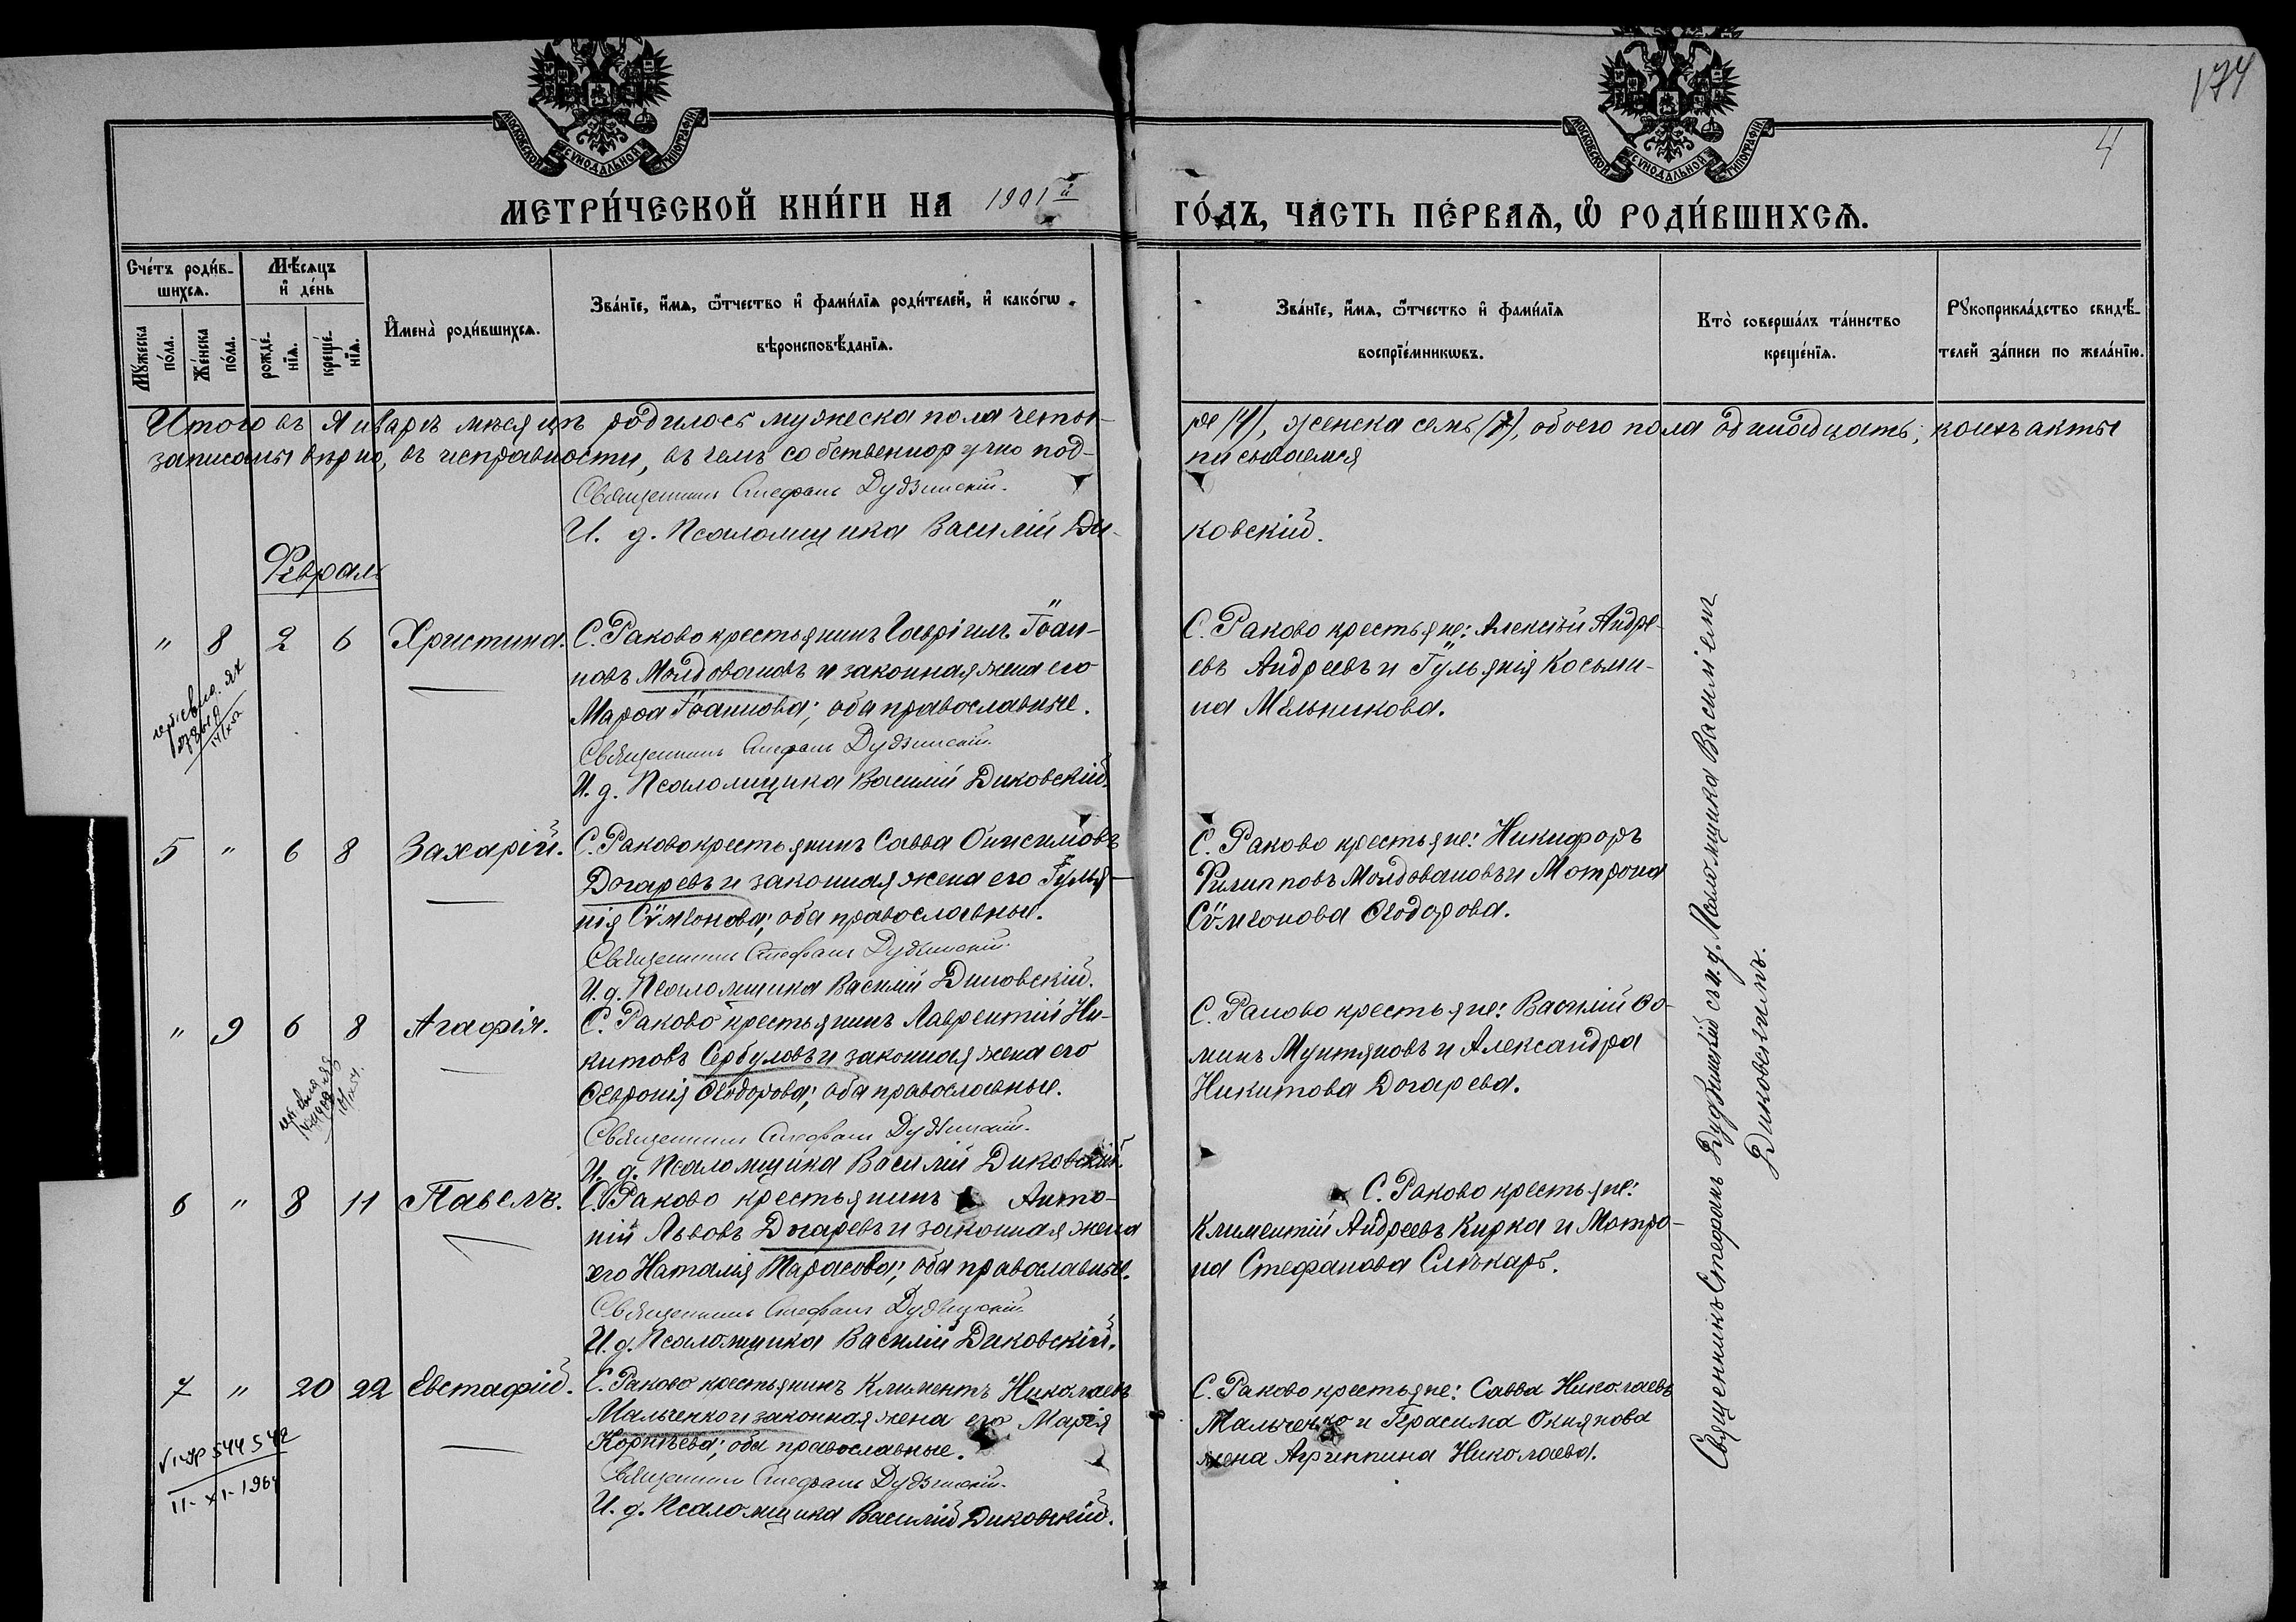 174
4
МОСКОВСКОЙ СѴНОДАЛЬНОЙ ТИПОГРАФІИ
МОСКОВСКОЙ СѴНОДАЛЬНОЙ ТИПОГРАФІИ
МЕТРИ́ЧЕСКОЙ КНИ́ГИ НА 1901й ГО́ДЪ, ЧА́СТЬ ПЕ́РВАѦ, Ѡ҆ РОДИ́ВШИХСѦ.
Сче́тъ роди́в-
шихсѧ.
Мꙋ́жеска
по́ла.
Же́нска
по́ла.
Мѣ́сѧцъ
и҆ де́нь
рожде́-
нїѧ.
креще́-
нїѧ.
И҆мена̀ роди́вшихсѧ.
Зва́нїе, и҆́мѧ, ѻ҆́тчество и҆ фами́лїѧ роди́телей, и҆ како́гѡ
вѣроисповѣ́данїѧ.
Зва́нїе, и҆́мѧ, ѻ҆́тчество и҆ фами́лїѧ
воспрїе́мникѡвъ.
Кто̀ соверша́лъ та́инство
креще́нїѧ.
Рꙋкоприкла́дство свидѣ́-
телей за́писи по жела́нїю.
Итого въ Январѣ мѣсяцѣ родилось мужеска пола четы-
ре /4/, женска семь /7/, обоего пола одинадцать; коихъ акты
записаны вѣрно, въ исправности, въ чемъ собственноручно под-
писываемся
Священникъ Стефанъ Дудзинскій.
И. д. Псаломщика Василій Ди-
ковскій.
Февраль
" 8 2 6 Христина. С. Раково крестьянинъ Гавріилъ Іоан-
новъ Молдовановъ и законная жена его
Марѳа Іоаннова; оба православные.
Священникъ Стефанъ Дудзинскій.
И. д. Псаломщика Василій Диковскій.
С. Раково крестьяне: Алексѣй Андре-
евъ Андреевъ и Іульянія Косьми-
на Мельникова.
5 " 6 8 Захарій. С. Раково крестьянинъ Савва Онисимовъ
Догаревъ и законная жена его Іулья-
нія Сѷмеонова; оба православные.
Священникъ Стефанъ Дудзинскій.
И. д. Псаломщика Василій Диковскій.
С. Раково крестьяне: Никифоръ
Филипповъ Молдовановъ и Мотрона
Сѷмеонова Ѳеодорова.
" 9 6 8 Агафія. С. Раково крестьянинъ Лаврентій Ни-
китовъ Сербуловъ и законная жена его
Ѳевронія Ѳеодорова; оба православные.
Священникъ Стефанъ Дудзинскій.
И. д. Псаломщика Василій Диковскій.
С. Раково крестьяне: Василій Ѳо-
минъ Мунтяновъ и Александра
Никитова Догарева.
6 " 8 11 Павелъ. С. Раково крестьянинъ Анто-
ній Львовъ Догаревъ и законная жена
его Наталія Тарасова; оба православные.
Священникъ Стефанъ Дудзинскій.
И. д. Псаломщика Василій Диковскій.
С. Раково крестьяне:
Климентій Андреевъ Кирка и Мотро-
на Стефанова
7 " 20 22 Евстафій. С. Раково крестьянинъ Климентъ Николаевъ
Мальченко и законная жена его Марія
Корнѣева; оба православные.
Священникъ Стефанъ Дудзинскій.
И. д. Псаломщика Василій Диковскій.
С. Раково крестьяне: Савва Николаевъ
Мальченко и Герасима Окнянова
жена Агриппина Николаева.
544542
11-XI-1964
Священникъ Стефанъ Дудзинскій съ и. д. Псаломщика Василіемъ
Диковскимъ.